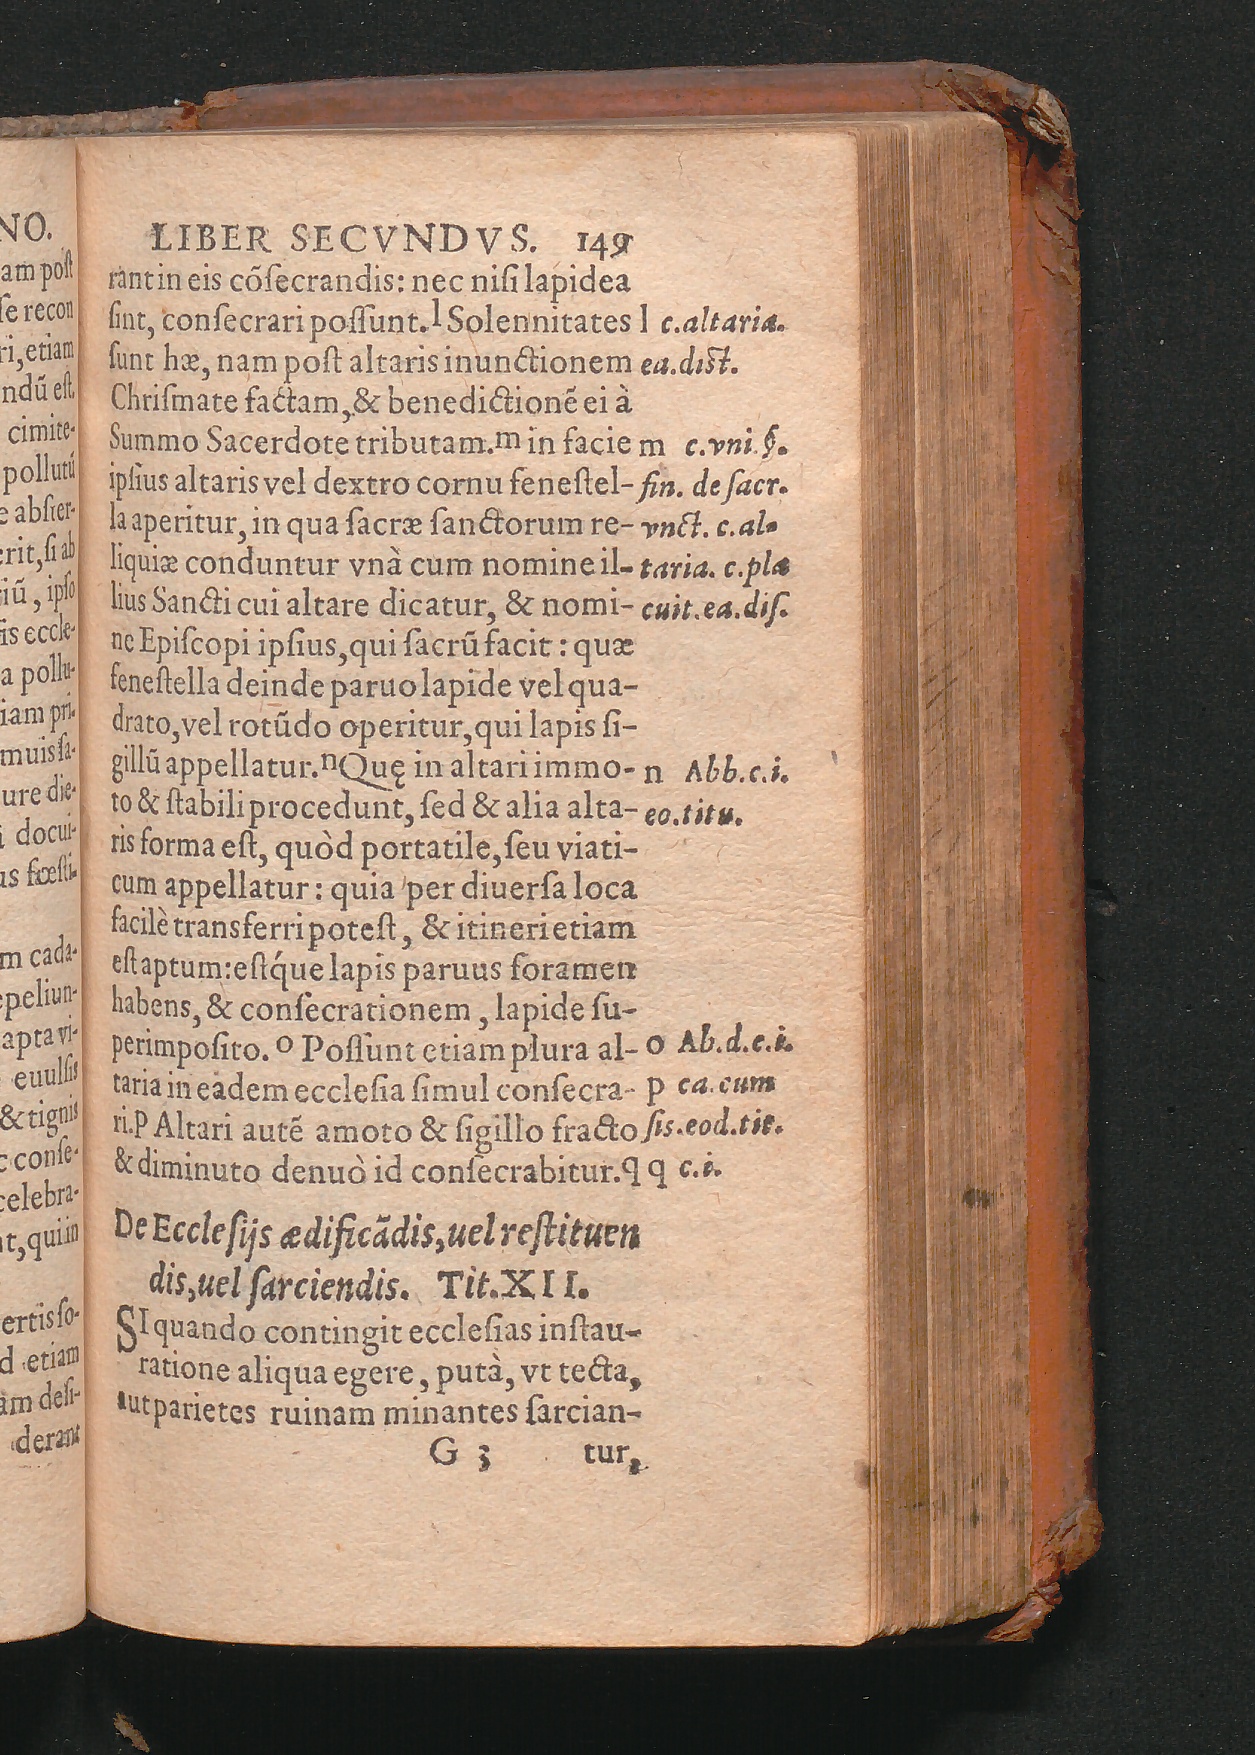 NO.
am poſt
ſe recon
ri, etiam
ndū eſt.
cimite-
pollutū
e abſter-
erit, ſi ab
iū, ipſo
is eccle-
a pollu-
iam pri-
muis ſa-
ure die-
i docui-
m cada-
epeliun-
apta vi-
euulſis
& tignis
c conſe-
celebra-
t, qui in
ertis ſo-
d etiam
àm deſi-
derant
LIBER SECVNDVS. 149
rant in eis cõſecrandis: nec niſi lapidea
ſint, conſecrari poſſunt. l Solennitates l c.altaria.
ſunt hæ, nam poſt altaris inunctionem ea.diſt.
Chriſmate factam, & benedictionẽ ei à
Summo Sacerdote tributam. m in facie m c.vni.§.
ipſius altaris vel dextro cornu feneſtel- fin. de ſacr.
la aperitur, in qua ſacræ ſanctorum re- vnct. c.al-
liquiæ conduntur vnà cum nomine il- taria. c.pla
lius Sancti cui altare dicatur, & nomi- cuit.ea.diſ.
ne Epiſcopi ipſius, qui ſacrũ facit: quæ
feneſtella deinde paruo lapide vel qua-
drato, vel rotũdo operitur, qui lapis ſi-
gillũ appellatur. n Quę in altari immo- n Abb.c.i.
to & ſtabili procedunt, ſed & alia alta- eo.titu.
ris forma eſt, quòd portatile, ſeu viati-
cum appellatur: quia per diuerſa loca
facilè transferri poteſt, & itineri etiam
eſt aptum: eſtq́ue lapis paruus foramen
habens, & conſecrationem, lapide ſu-
perimpoſito. o Poſſunt etiam plura al- o Ab.d.c.i.
taria in eadem eccleſia ſimul conſecra- p ca.cum
ri. p Altari autẽ amoto & ſigillo fracto ſis.eod.tit.
& diminuto denuò id conſecrabitur. q q c.i.
De Eccleſijs ædificãdis, uel reſtituen
dis, uel ſarciendis. Tit. XII.
SI quando contingit eccleſias inſtau-
ratione aliqua egere, putà, vt tecta,
aut parietes ruinam minantes ſarcian-
G 3 tur,